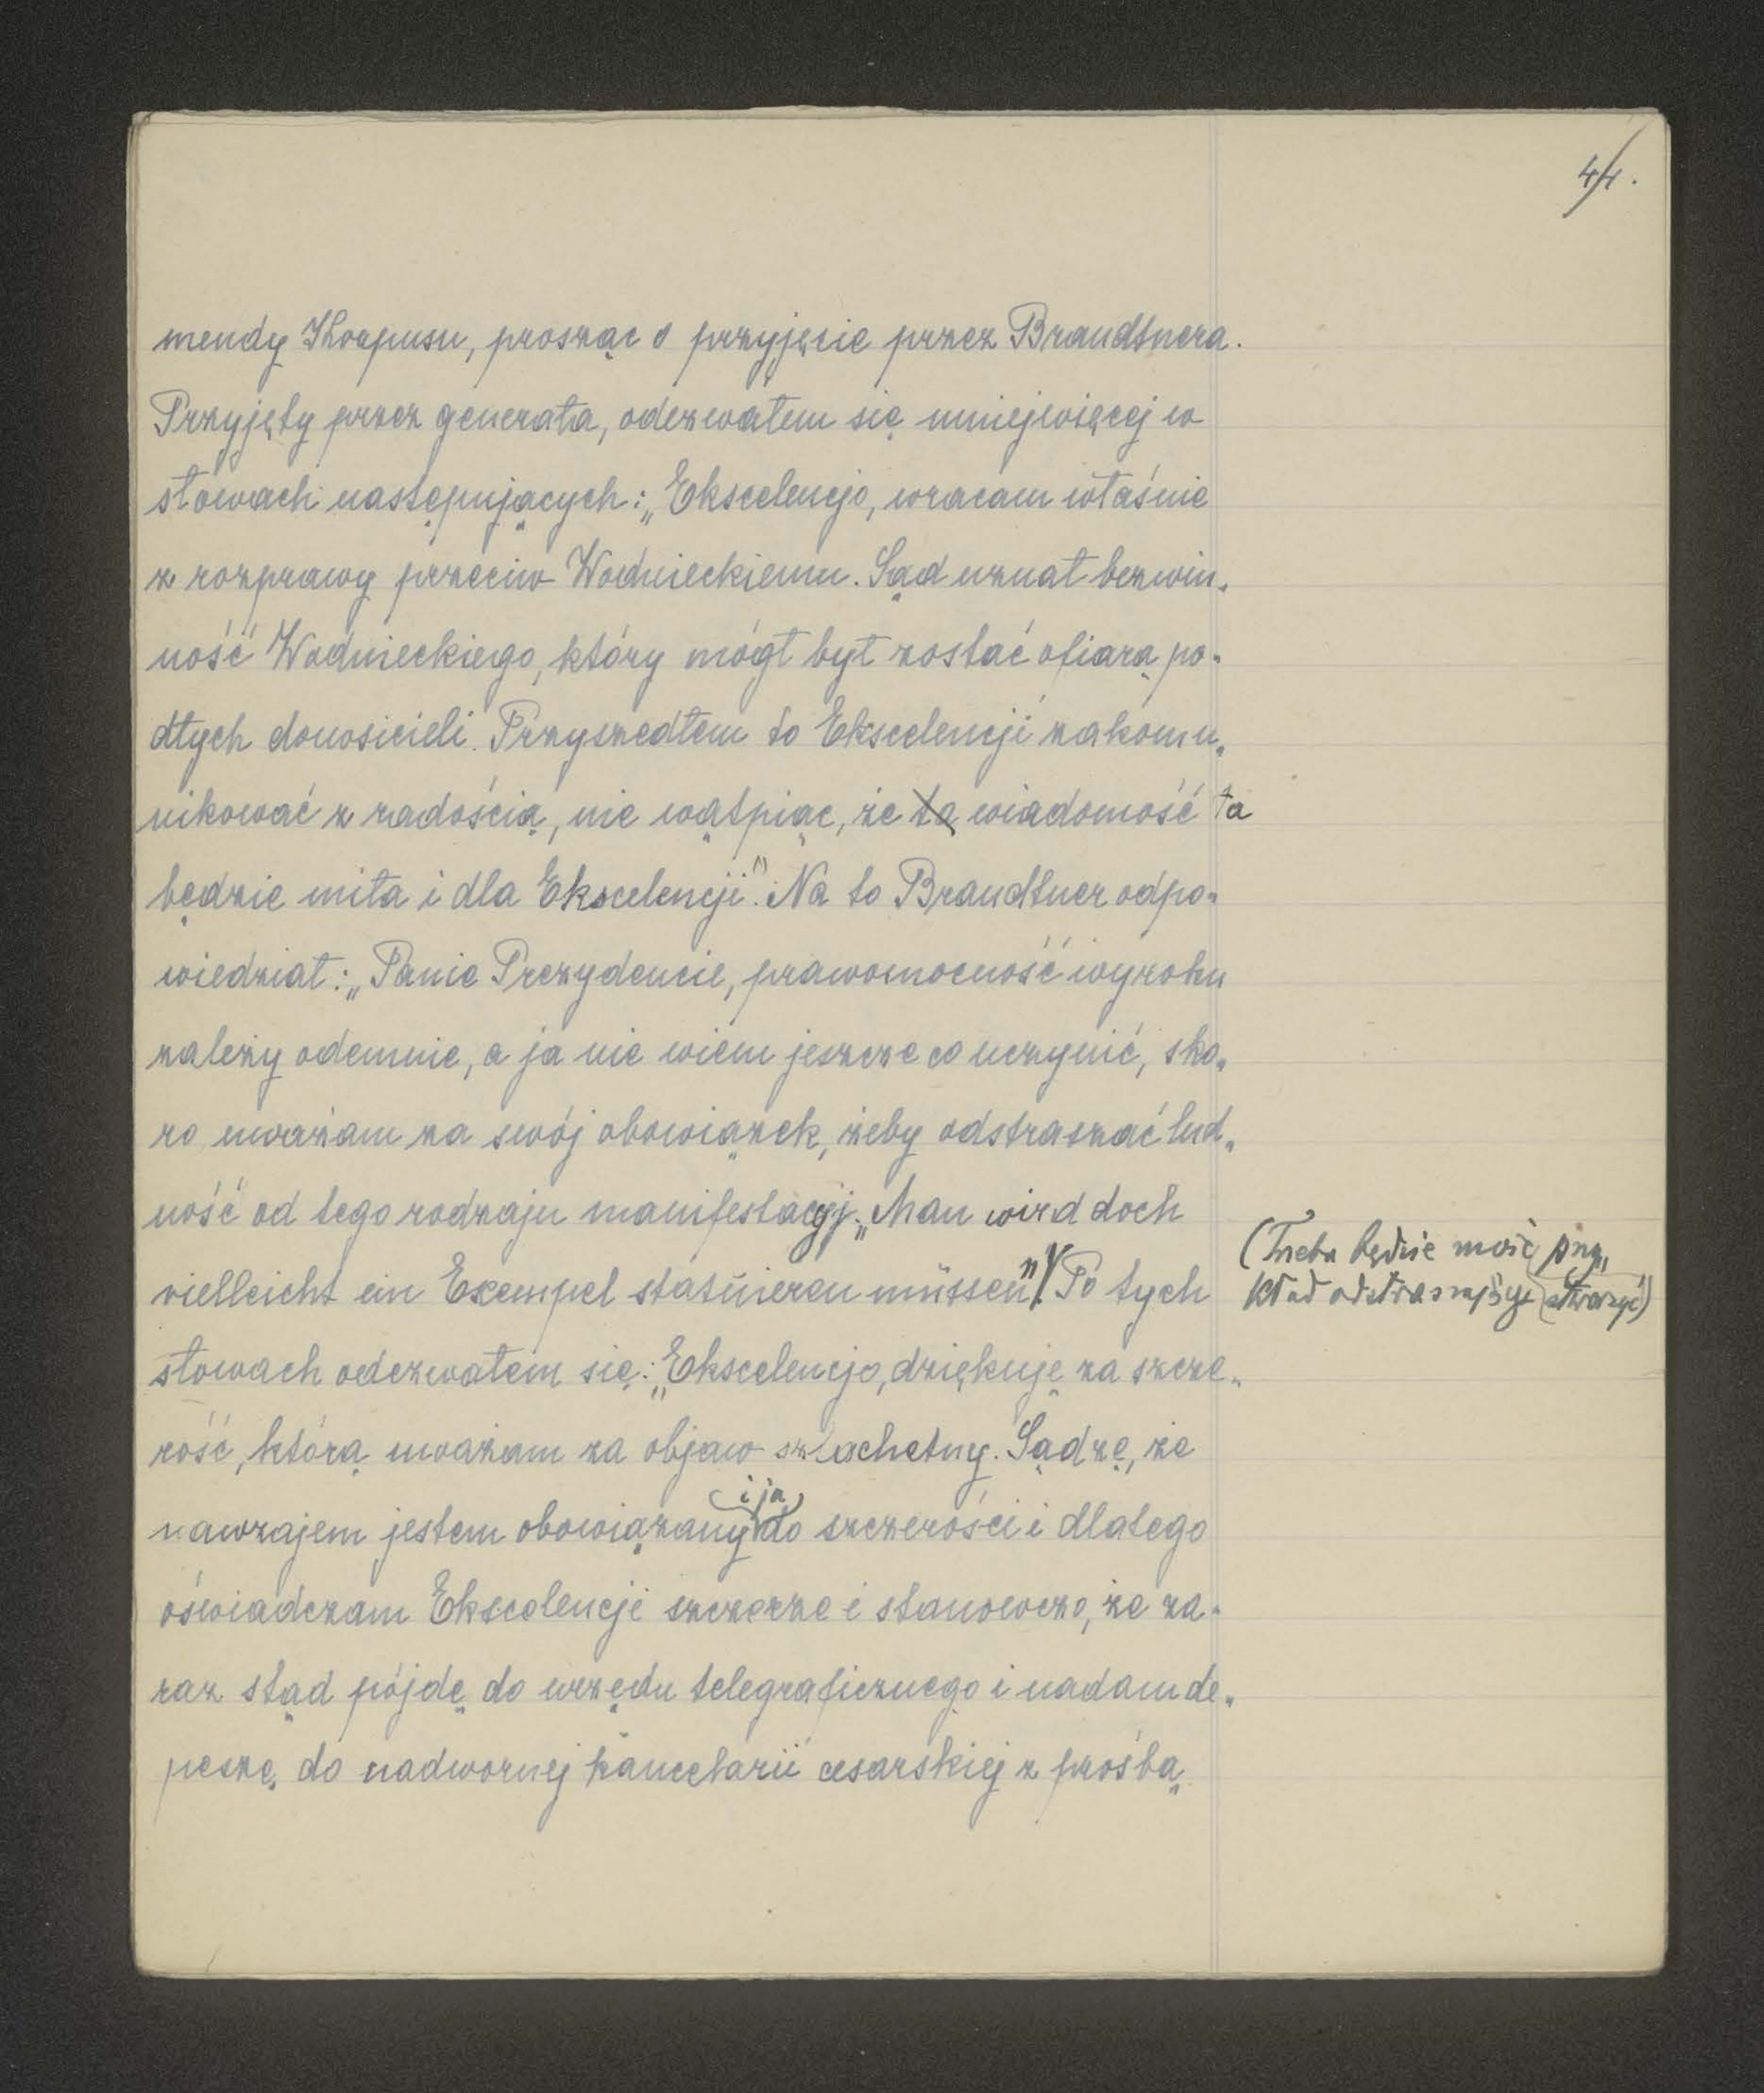 44.
mendy Korpusu, prosząc o przyjęcie przez Brandtnera.
Przyjęty przez generała, odezwałem się mniejwięcej w
słowach następujących: „Ekscelencjo, wracam właśnie
z rozprawy przeciw Wodnieckiemu. Sąd uznał bezwin-
ność Wodnieckiego, który mógł był zostać ofiarą po-
dłych donosicieli. Przyszedłem to Ekscelencji zakomu-
nikować z radością, nie wątpiąc, że ta wiadomość ta
będzie miła i dla Ekscelencji". Na to Brandtner odpo-
wiedział: „Panie Prezydencie, prawomocność wyroku
zależy odemnie, a ja nie wiem jeszcze co uczynić, sko-
ro uważam za swój obowiązek, żeby odstraszać lud-
ność od tego rodzaju manifestacyj. „Man wird doch
vielleicht ein Exempel statuieren müssen"! Po tych
(Trzeba będzie może przy-
kład odstraszający stworzyć)
słowach odezwałem się: „Ekscelencjo, dziękuję za szcze-
rość, którą uważam za objaw szlachetny. Sądzę, że
i ja
nawzajem jestem obowiązany do szczerości i dlatego
oświadczam Ekscelencji szczerze i stanowczo, że za-
raz stąd pójdę do urzędu telegraficznego i nadam de-
peszę do nadwornej kancelarii cesarskiej z prośbą